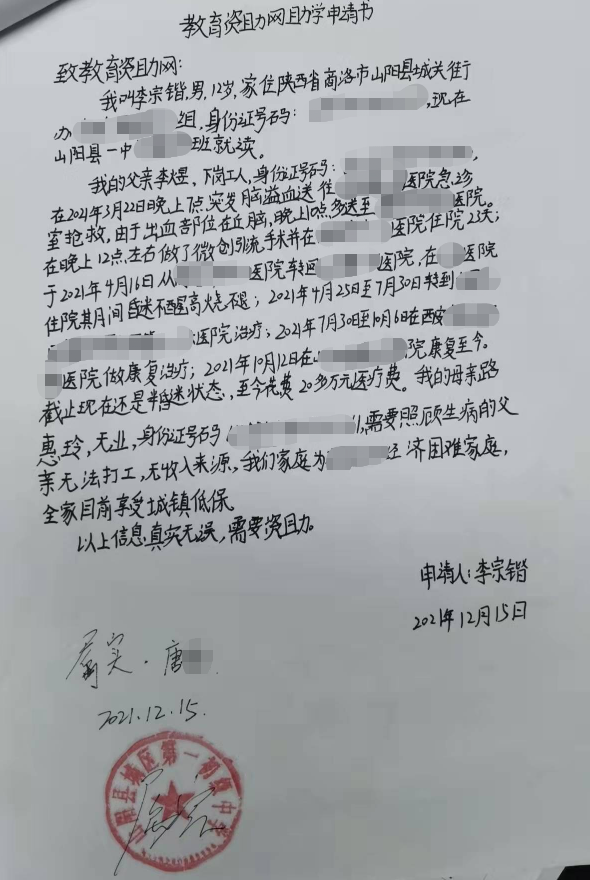 教育资助网助学申请书
致教育资助网:
我叫李宗锴,男,12岁,家住陕西省商洛市山阳县城关街
办 组,身份证号码: ,现在
山阳县一中 班就读。
我的父亲李煜、下岗工人,身份证号码: ,
在2021年3月22日晚上7点突发脑溢血送往 医院急诊
室抢救,由于出血部位在丘脑,晚上10点多送至 医院。
在晚上12点左右做了微创引流手术并在 医院住院23天;
于2021年4月16日从 医院转回 医院,在 医院
住院其月间昏迷不醒高烧不退;2021年4月25日至7月30日转到
医院治疗;2021年7月30日至10月6日在西安
医院做康复治疗;2021年10月12日在 院康复至今。
截止现在还是半昏迷状态,至今花费20多万元医疗费。我的母亲路
惠玲,无业,身份证号码 ,需要照顾生病的父
亲无法打工,无收入来源,我们家庭为 经济困难家庭,
全家目前享受城镇低保。
以上信息真实无误,需要资助。
申请人:李宗锴
2021年12月15日
属实.唐
2021.12.15.
山阳县城区第一初级中学
属实